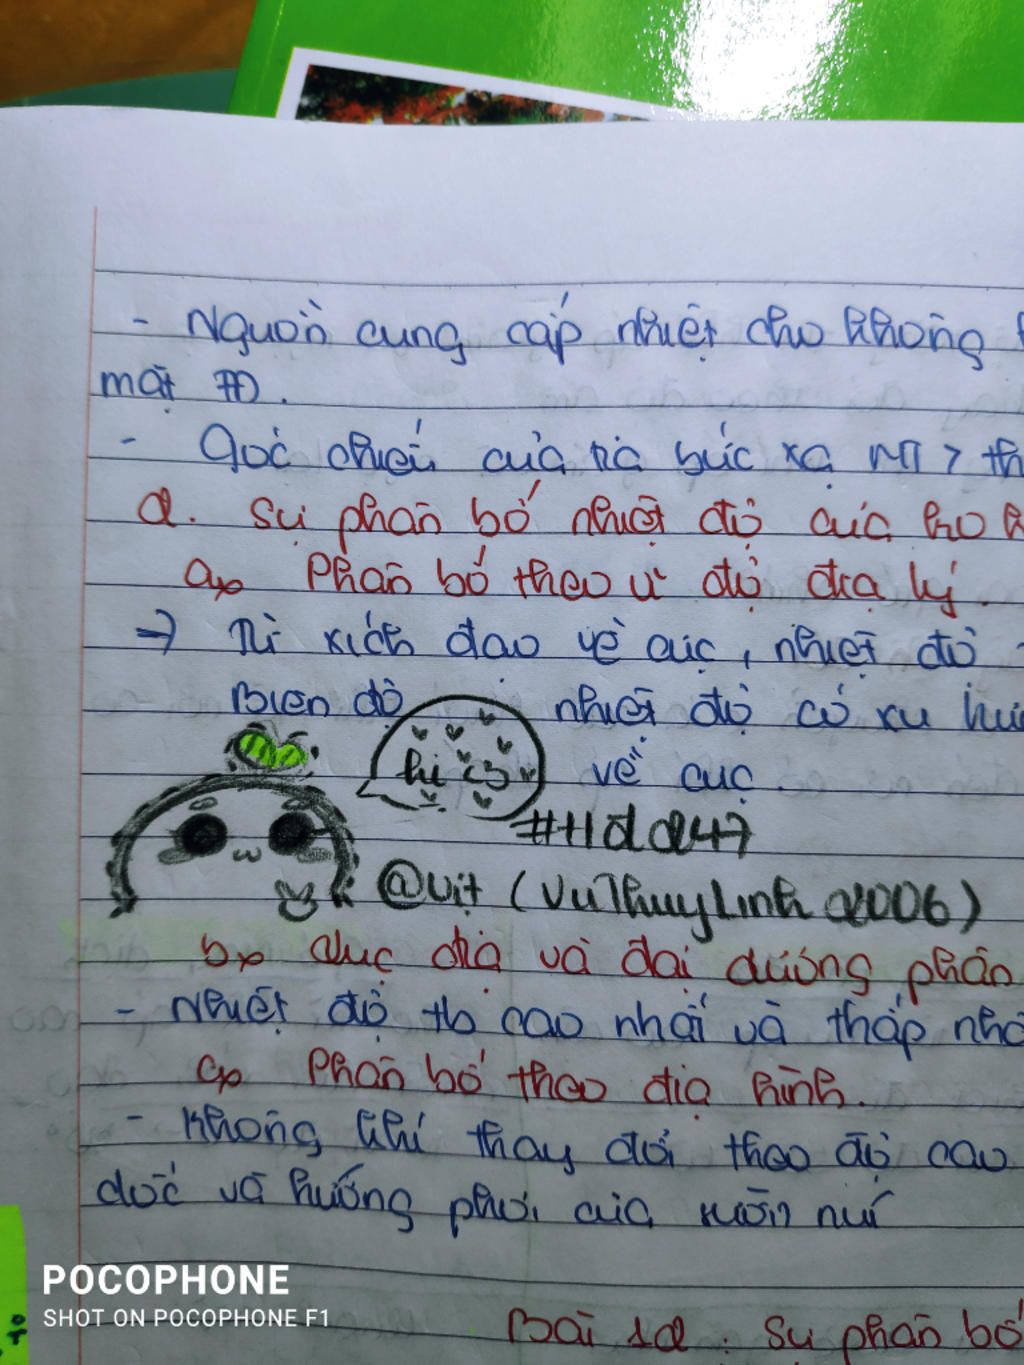 - Nguồn cung cấp nhiệt cho không
mặt TĐ.
- Góc chiếu của tia bức xạ MT > th
2. Sự phân bố nhiệt độ của ko k
a, Phân bố theo vĩ độ địa lý.
→ Từ xích đạo về cực, nhiệt độ
Biên độ nhiệt độ có xu hướ
hi <3
về cực.
#Hdd247
@Vịt (VuThuyLinh 2006)
b, Lục địa và đại dương phân
- Nhiệt độ tb cao nhất và thấp nhấ
c, Phân bố theo địa hình.
- Không khí thay đổi theo độ cao
dốc và hướng phơi của sườn núi
Bài 12: Sự phân bố
POCOPHONE
SHOT ON POCOPHONE F1